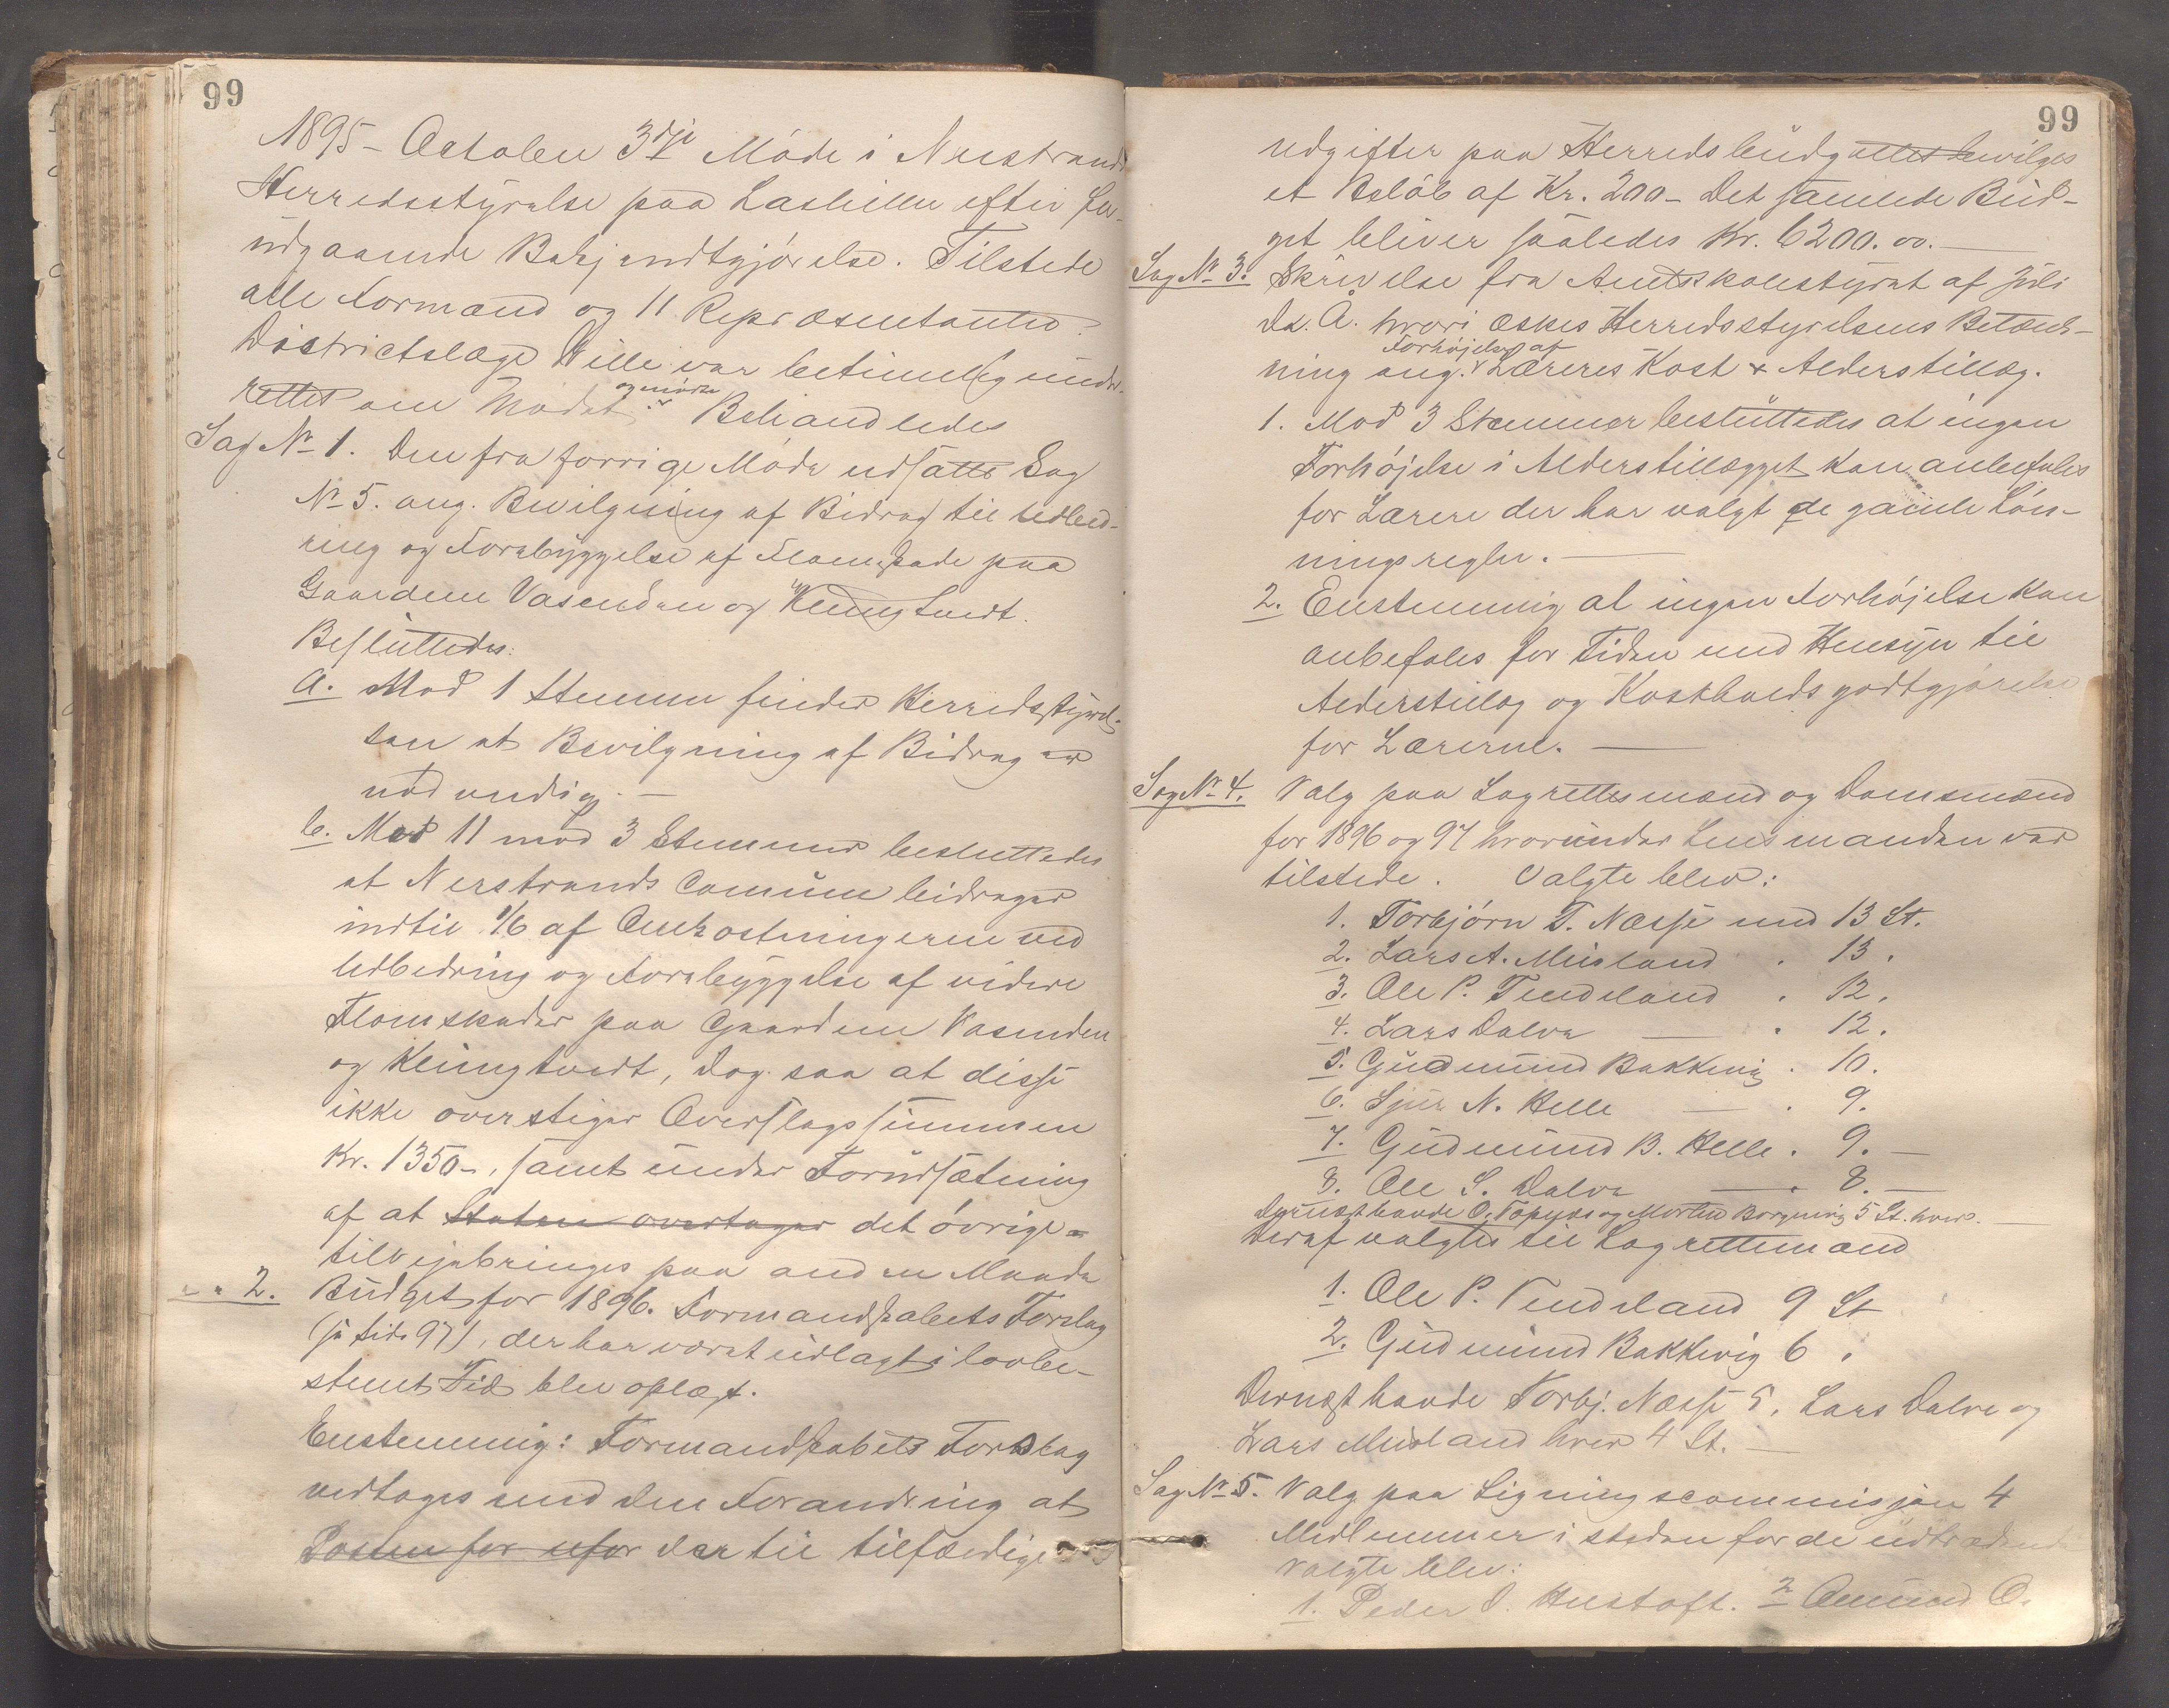 99
1895 - October 3dje Møde i Nerstrands
Herredsstyrelse paa Lashillen efter for-
udgaaende Bekjendtgjørelse. Tilstede
alle Formænd og 11 Repræsentanter.
Districtslæge Wille var betimelig under-
rettet om Mødet og mødte. Behandledes
Sag No 1. Den fra forrige Møde udsatte Sag
No 5. ang. Bevilgning af Bidrag til Udbed-
ring og Forebyggelse af Flomskade paa
Gaardene Vasenden og Klungtvedt.
Besluttedes:
a. Mod 1 Stemme finder Herredsstyrel-
sen at Bevilgning af Bidrag er
nødvendig. —
b. Med 11 mod 3 Stemmer besluttedes
at Nerstrands Comune bidrager
indtil 1/6 af Omkostningerne ved
Udbedring og Forebyggelse af videre
Flomskader paa Gaardene Vasenden
og Klungtvedt, dog saa at disse
ikke overstiger Overslagssummen
Kr. 1350-, samt under Forudsætning
af at Staten overtager det øvrige
tilvejebringes paa anden Maade
" " 2. Budget for 1896. Formandskabets Forslag
(se side 97), der har været udlagt i lovbe-
stemt Tid blev oplæst.
Enstemmig: Formandskabets Forslag
vedtages med den Forandring at
Posten for ufor der til tilfældige
99
udgifter paa Herredsbudgettet bevilges
et Beløb af Kr. 200 - Det samlede Bud-
get bliver således Kr. 6200.00. —
Sag No 3. Skrivelse fra Amtsskolestyret af Juli
ds. A. hvori æskes Herredsstyrelsens Betænk-
ning ang. Forhøjelse af Læreres Kost & Alderstillæg.
1. Mod 3 Stemmer besluttedes at ingen
Forhøjelse i Alderstillægget kan anbefales
for Lærere der har valgt de gamle Løn-
ningsregler. —
2. Enstemmig at ingen Forhøjelse kan
anbefales for Tiden med Hensyn til
Alderstillæg og Kostholdsgodtgjørelse
for Lærerne. —
Sag No 4. Valg paa Lagrettesmænd og Domsmænd
for 1896 og 97 hvorunder Lensmanden var
tilstede. Valgte blev:
1. Torbjørn T. Næsse med 13 St.
2. Lars A. Misland . 13 .
3. Ole P. Tendeland . 12.
4. Lars Dalva — . 12.
5. Gudmund Bakkevig . 10.
6. Sjur N. Helle — . 9.
7. Gudmund B. Helle . 9. —
8. Ole S. Dalva — . 8. —
Dernæst havde O. Napens og Morten Borgenvig 5 St. hver. —
Deraf valgtes til Lagrettemænd
1. Ole P. Tendeland 9 St
2. Gudmund Bakkevig 6 .
Dernæst havde Torbj. Næsse 5, Lars Dalva og
Lars Misland hver 4 St. —
Sag No 5. Valg paa Ligningscommisjon 4
Medlemmer i steden for de udtrædende
valgte blev:
1. Peder O. Hustoft. 2 Amund O.